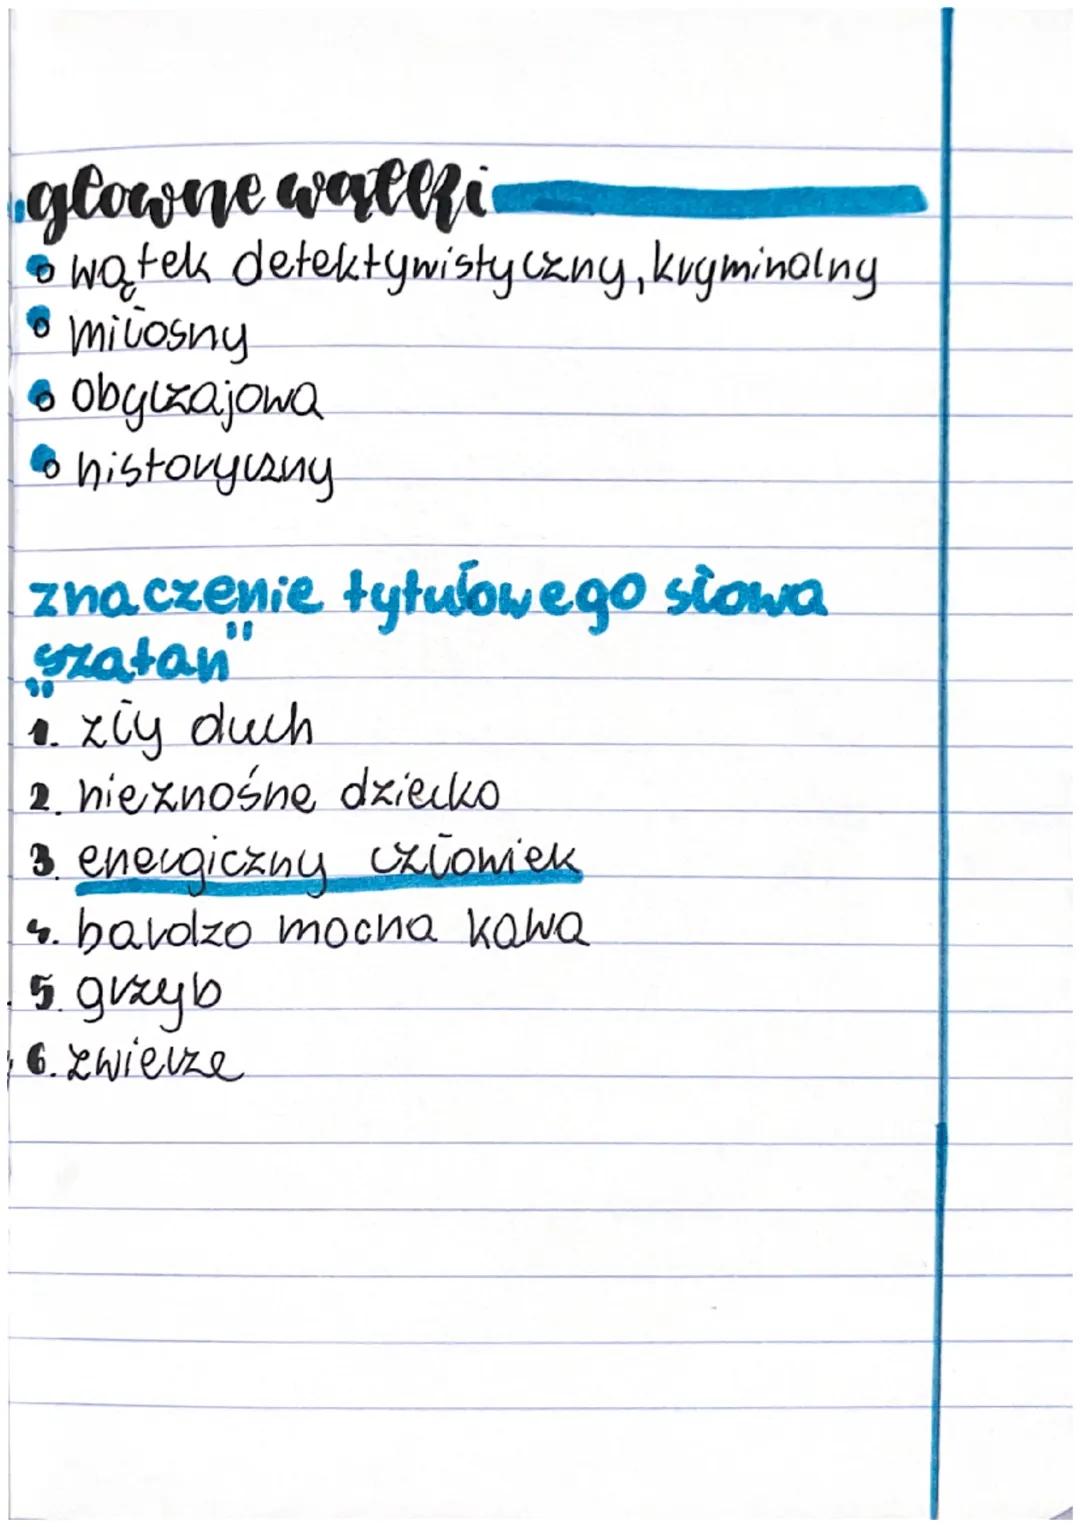 główne wątki
wątek detektywistyczny, kryminalny
miłosny
obyczajowa
historyczny
znaczenie tytułowego słowa
„szatan"
1. zły duch
2. nieznośne dziecko
3. energiczny człowiek
4. bardzo mocna kawa
5. grzyb
6. zwierzę